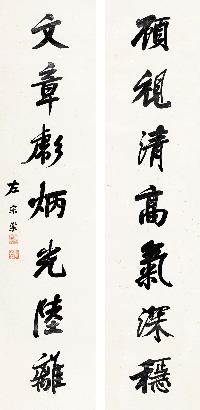 顧視清高氣深穩
文章彪炳光陸離
左宗棠